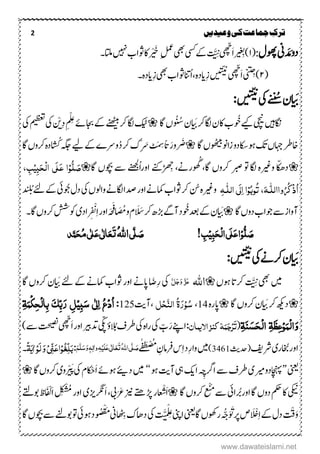 ترکِ جماعت کی وعیدیں 2
دو مَدَنی پھول:(۱) بِغیر اَچّھی نیَّت کے کسی بھی عملِ خَیر کا ثواب نہیں ملتا۔
(۲) جتنی اَچّھی نیَّتیں زِیادہ، اُتنا ثواب بھی زِیادہ۔
بَیان سُننے کی نیَّتیں:
نگاہیں نیچی کیے خُوب کان لگا کر بَیان سُنُوں گا ❁ ٹیک لگا کر بیٹھنے کے بجائے عِلْمِ دِیْن کی تعظیم کی
خاطر جہاں تک ہو سکا دو زانو بیٹھوں گا ❁ ضَرورَتاً سِمَٹ سَرَک کر دوسرے کے لیے جگہ کُشادہ کروں گا
❁ دھکّا وغیرہ لگا تو صبر کروں گا، گُھورنے، جِھڑکنے اور اُلجھنے سے بچوں گا ❁ صَلُّوْا عَلَی الْحَبِیْبِ،
اُذْکُرُوا اللّٰہَ، تُوبُوْا اِلَی اللّٰہِ وغیرہ سُن کر ثواب کمانے اور صدا لگانے والوں کی دل جُوئی کے لئے بُلند
آواز سے جواب دوں گا ❁ بَیان کے بعد خُود آگے بڑھ کر سَلَام و مُصَافَحَہ اور اِنْفِرادی کوشش کروں گا۔
صَلُّوْا عَلَی الْحَبِیْبِ! صَلَّی اللّٰہُ تَعَالٰی عَلٰی مُحَمَّد
بَیان کرنے کی نیَّتیں:
میں بھی نیَّت کرتا ہوں ❁ اللہ عَزَّ وَجَلَّ کی رِضا پانے اور ثواب کمانے کے لئے بَیان کروں گا
❁ دیکھ کر بَیان کروں گا ❁ پارہ 14، سُوْرَۃُ النَّحْل، آیت 125: اُدْعُ اِلٰی سَبِیْلِ رَبِّکَ بِالْحِکْمَۃِ
وَالْمَوْعِظَۃِ الْحَسَنَۃِ (تَرجَمَۂ کنزالایمان: اپنے رَبّ کی راہ کی طرف بُلاؤ پکّی تدبیر اور اَچّھی نصیحت سے)
اور بخاری شریف (حدیث 3461) میں وارِد اِس فرمانِ مُصْطَفٰے صَلَّی اللّٰہُ تَعَالٰی عَلَیْہِ وَاٰلِہٖ وَسَلَّم: بَلِّغُوْا عَنِّیْ وَلَوْ اٰیَۃً۔
یعنی ”پہنچا دو میری طرف سے اگرچہ ایک ہی آیت ہو“ میں دیئے ہوئے اَحکام کی پَیروی کروں گا ❁
نیکی کا حکم دوں گا اور بُرائی سے مَنْع کروں گا ❁ اَشعار پڑھتے نیز عَرَبی، انگریزی اور مُشْکِل اَلْفَاظ بولتے
وَقْت دل کے اِخْلَاص پر تَوَجُّہ رکھوں گا یعنی اپنی عِلْمِیَّت کی دھاک بِٹھانی مَقْصُود ہوئی تو بولنے سے بچوں گا
www.dawateislami.net